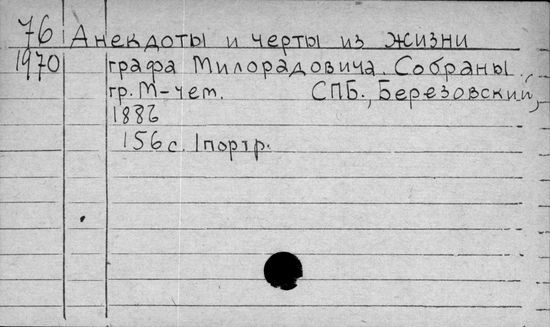 76 Анекдоты и черты из жизни
1970 графа Милорадовича. Собраны
гр. М-чем. СПБ., Березовский,
1886
156 с. 1портр.